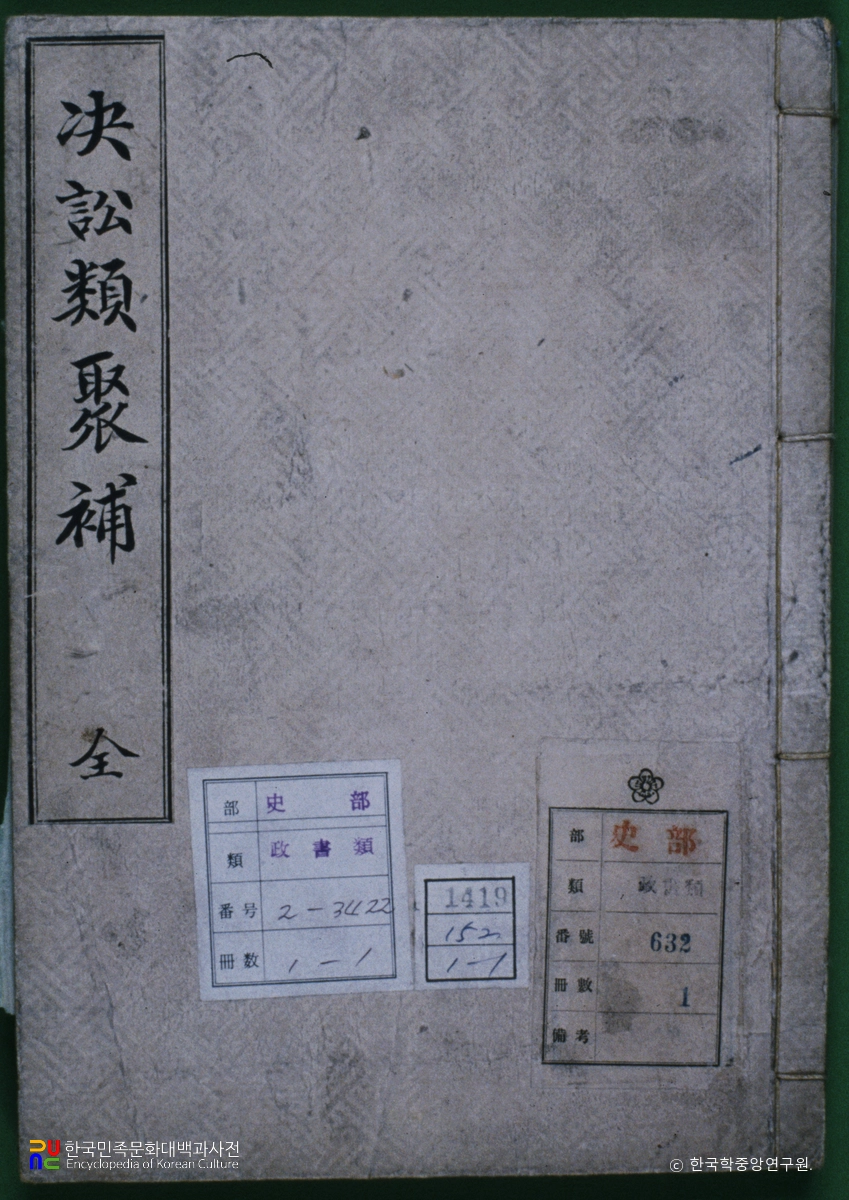 决訟類聚補 全
部 史部
類 政書類
番号 2-3422
冊数 1-1
1419
152
1-1
部 史部
類 政書類
番號 632
冊數 1
備考
한국민족문화대백과사전
Encyclopedia of Korean Culture
© 한국학중앙연구원.